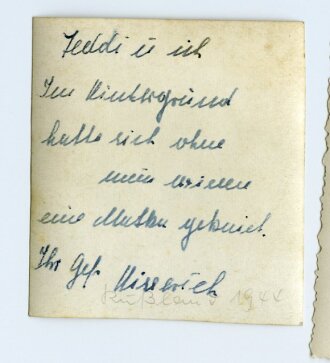 Teddi u ich
Im Hintergrund
hatte sich ohne
mein wissen
eine Matka gekniet.
Ihr Gef.
Rußland 1944